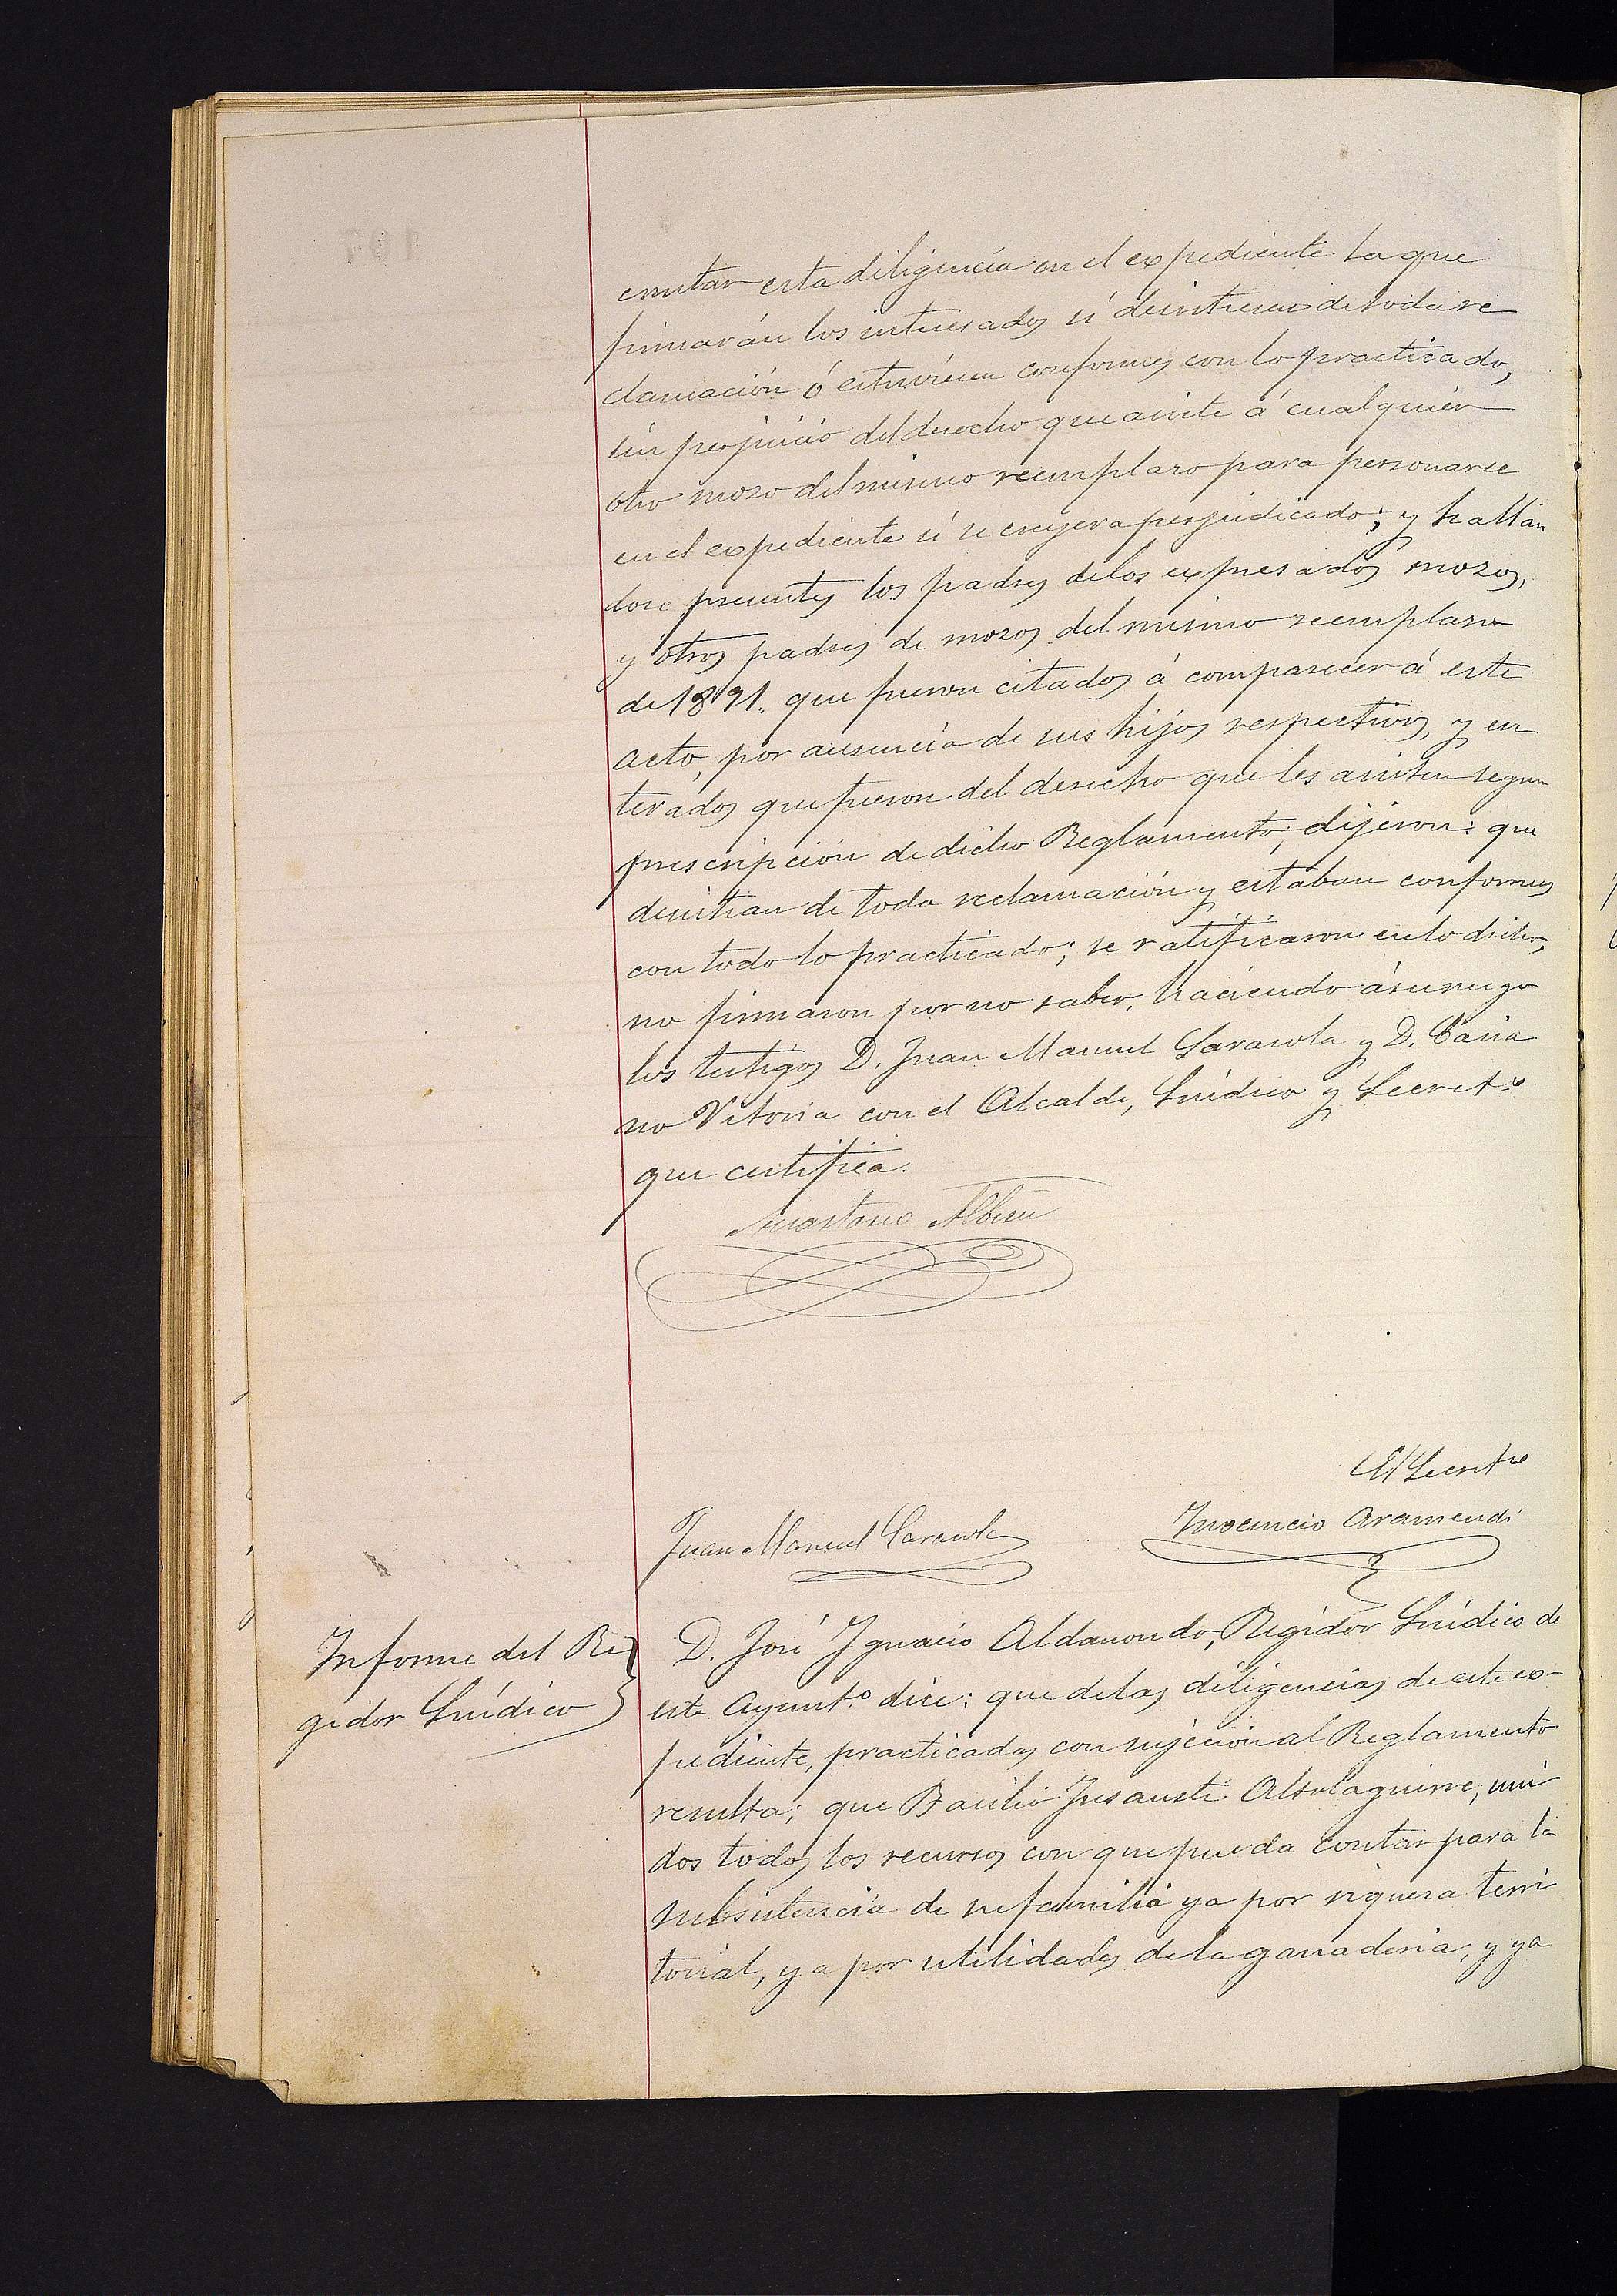 constar esta diligencia en el expediente la que
firmarán los interesados si desistiesen de toda re
clamación ó estuviesen conformes con lo practicado,
sin perjuicio del derecho que asiste á cualquier
otro mozo del mismo reemplazo para personarse
en el expediente si se creyera perjudicado; y hallán
dose presentes los padres de los expresados mozos,
y otros padres de mozos del mismo reemplazo
de 1891. que fueron citados á comparecer á este
acto, por ausencia de sus hijos respectivos, y en
terados que fueron del derecho que les asisten segun
prescripción de dicho Reglamento, dijeron: que
desistian de toda reclamación y estaban conformes
con todo lo practicado; se ratificaron en lo dicho,
no firmaron por no saber, haciendo á su ruego
los testigos D. Juan Manuel Sarasola y D. Casia
no Vitoria con el Alcalde, Síndico y Secret.º
que certifica.
Anastasio Albisu
El Secret.º
Juan Manuel Sarasola
Inocencio Aramendi
Informe del Re
gidor Síndico
D. José Ygnacio Aldanondo, Regidor Síndico de
este Ayunt.º dice: que de las diligencias de este ex-
pediente, practicadas con sujeción al Reglamento
resulta; que Basilio Altolaguirre, uni
dos todos los recursos con que pueda contar para la
subsistencia de su familia ya por riqueza terri
torial, ya por utilidades de la ganaderia, y ya